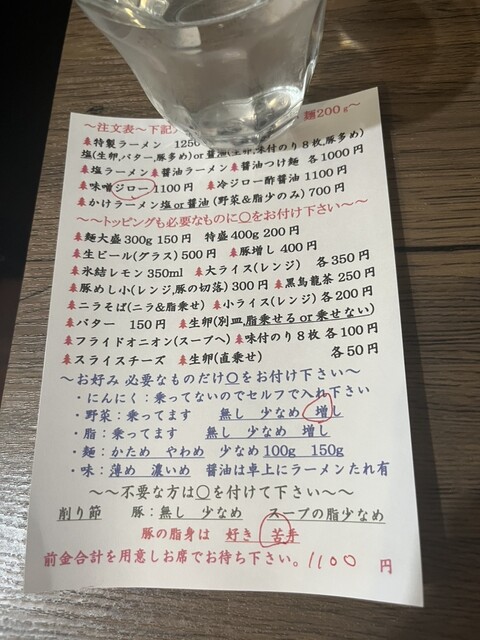 ～注文表～下記 麺200g～
特製ラーメン 1250
塩(生卵,バター,豚多め)or醤油(生卵,味付のり8枚,豚多め)
塩ラーメン 醤油ラーメン 醤油つけ麺 各1000円
味噌ジロー1100円 冷ジロー酢醤油1100円
かけラーメン塩or醤油(野菜&脂少のみ)700円
～～トッピングも必要なものに〇をお付け下さい～～
麺大盛300g 150円 特盛400g 200円
生ビール(グラス)500円 豚増し400円
氷結レモン350ml 大ライス(レンジ) 各350円
豚めし小(レンジ,豚の切落)300円 黒烏龍茶250円
ニラそば(ニラ&脂乗せ) 小ライス(レンジ)各200円
バター 150円 生卵(別皿,脂乗せるor乗せない)
フライドオニオン(スープへ) 味付のり8枚 各100円
スライスチーズ 生卵(直乗せ) 各50円
～お好み 必要なものだけ〇をお付け下さい～
・にんにく:乗ってないのでセルフで入れ下さい
・野菜:乗ってます 無し 少なめ 増し
・脂:乗ってます 無し 少なめ 増し
・麺:かため やわめ 少なめ100g 150g
・味:薄め 濃いめ 醤油は卓上にラーメンたれ有
～～不要な方は〇を付けて下さい～～
削り節 豚:無し 少なめ スープの脂少なめ
豚の脂身は 好き 苦手
前金合計を用意しお席でお待ち下さい。1100 円